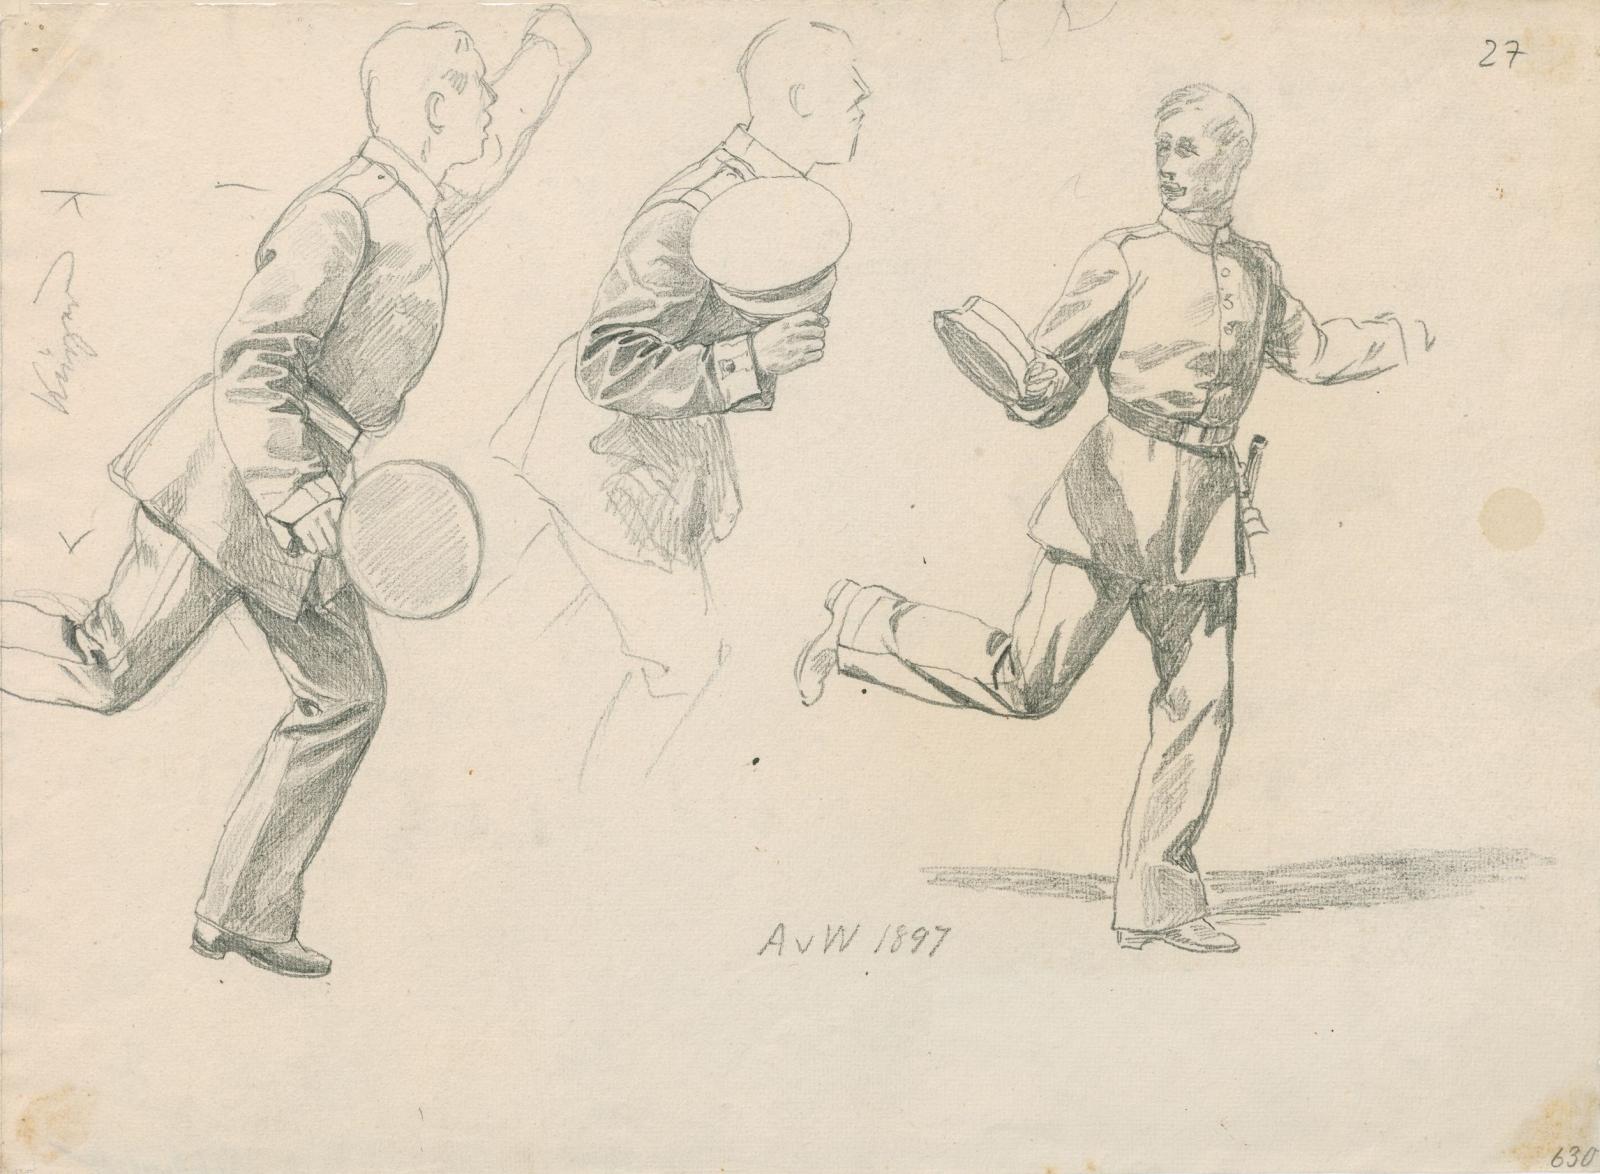 27
AvW 1897
630